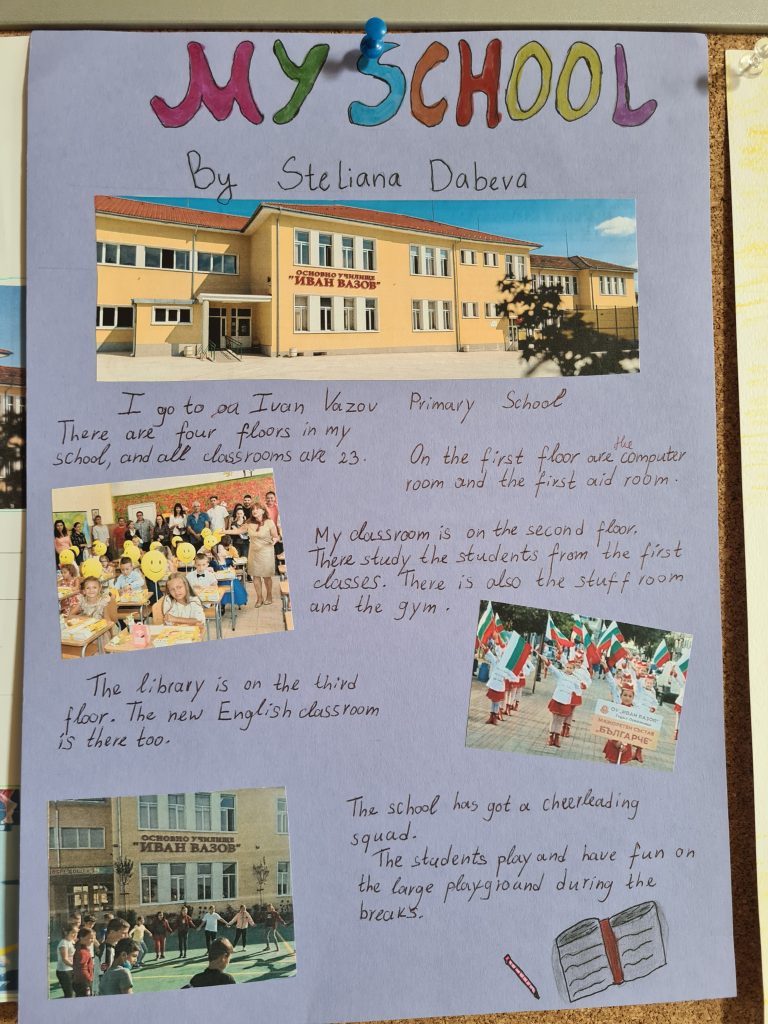 MY SCHOOL
By Steliana Dabeva
ОСНОВНО УЧИЛИЩЕ
"ИВАН ВАЗОВ"
I go to Ivan Vazov Primary School
There are four floors in my
school, and all classrooms are 23.
On the first floor are the computer
room and the first aid room.
My classroom is on the second floor.
There study the students from the first
classes. There is also the stuff room
and the gym.
The library is on the third
floor. The new English classroom
is there too.
ОУ "ИВАН ВАЗОВ"
МАЖОРЕТЕН СЪСТАВ
"БЪЛГАРЧЕ"
ОСНОВНО УЧИЛИЩЕ
"ИВАН ВАЗОВ"
The school has got a cheerleading
squad.
The students play and have fun on
the large playground during the
breaks.